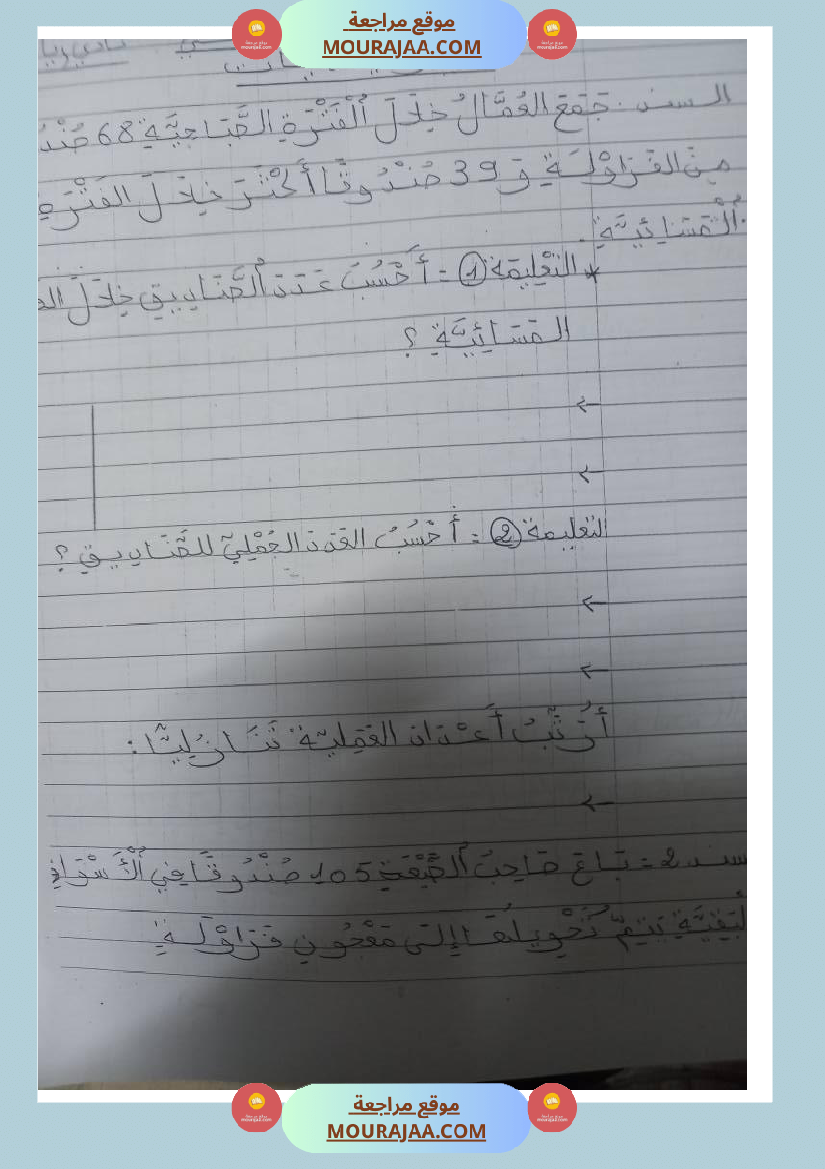 موقع مراجعة
MOURAJAA.COM
السند: جَمَعَ العُمَّالُ خِلَالَ الْفَتْرَةِ الصَّبَاحِيَّةِ 68
مِنَ الفَرَاوْلَةِ وَ 39 صُنْدُوقًا أَكْثَرَ خِلَالَ الفَتْرَةِ
الْمَسَائِيَّةِ.
* التعْلِيمَة ① = أَحْسُبُ عَدَدَ الصَّنَادِيقِ خِلَالَ
المَسَائِيَّةِ ؟
التعليمة ② = أَحْسُبُ العَدَدَ الجُمْلِيَّ للصَّنَادِيقِ ؟
أُرَتِّبُ أَعْدَادَ العَمَلِيَّة تَنَازُلِيًّا :
سند 2 = بَاعَ صَاحِبُ الضَّيْعَةِ 105 صُنْدُوقًا فِي الْأَسْوَاقِ
لبَقِيَّةِ يَتِمُّ تَحْوِيلُهَا إِلَى مَعْجُونِ فَرَاوْلَةٍ
موقع مراجعة
MOURAJAA.COM